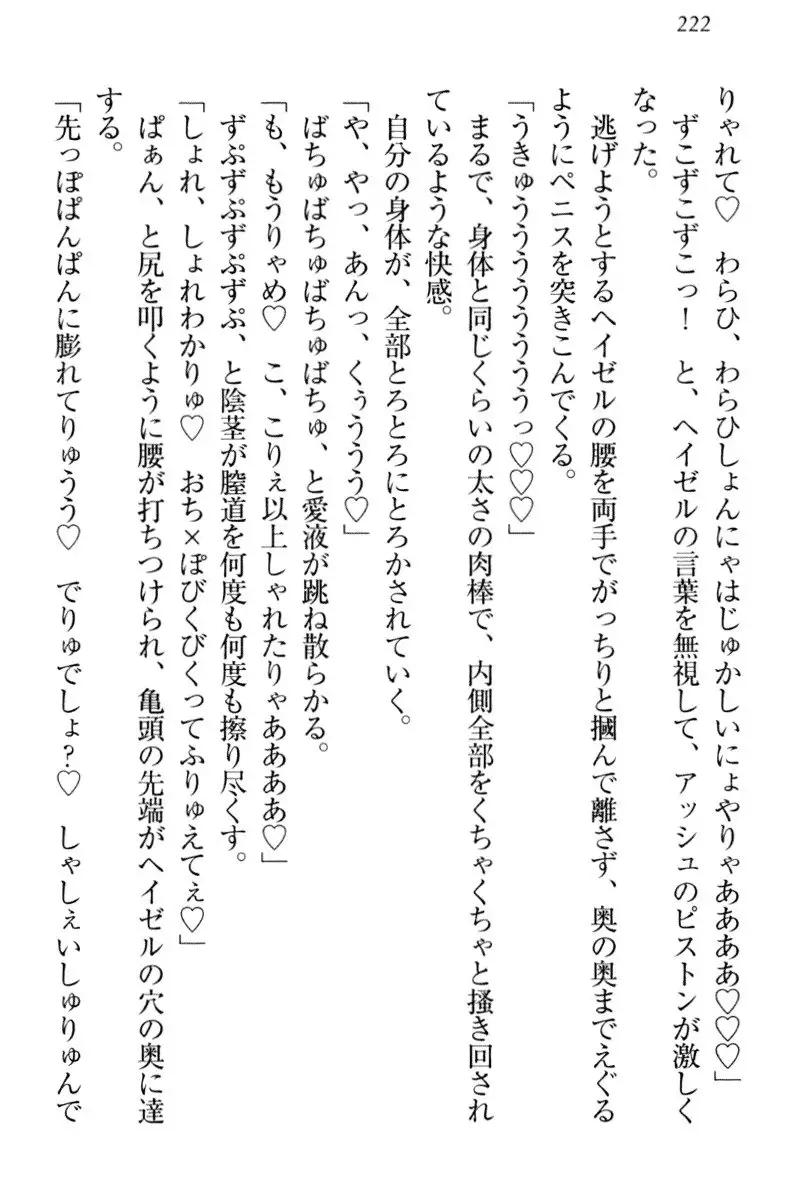 222
りゃれて♡　わらひ、わらひしょんにゃはじゅかしいにょやりゃああああ♡♡♡」
ずこずこずこっ！　と、ヘイゼルの言葉を無視して、アッシュのピストンが激しく
なった。
逃げようとするヘイゼルの腰を両手でがっちりと摑んで離さず、奥の奥までえぐる
ようにペニスを突きこんでくる。
「うきゅうううううううううっ♡♡♡」
まるで、身体と同じくらいの太さの肉棒で、内側全部をくちゃくちゃと掻き回され
ているような快感。
自分の身体が、全部とろとろにとろかされていく。
「や、やっ、あんっ、くぅううう♡」
ばちゅばちゅばちゅばちゅ、と愛液が跳ね散らかる。
「も、もうりゃめ♡　こ、こりぇ以上しゃれたりゃああああ♡」
ずぷずぷずぷずぷ、と陰茎が膣道を何度も何度も擦り尽くす。
「しょれ、しょれわかりゅ♡　おち×ぽびくびくってふりゅえてぇ♡」
ぱぁん、と尻を叩くように腰が打ちつけられ、亀頭の先端がヘイゼルの穴の奥に達
する。
「先っぽぱんぱんに膨れてりゅうう♡　でりゅでしょ？♡　しゃしぇいしゅりゅんで